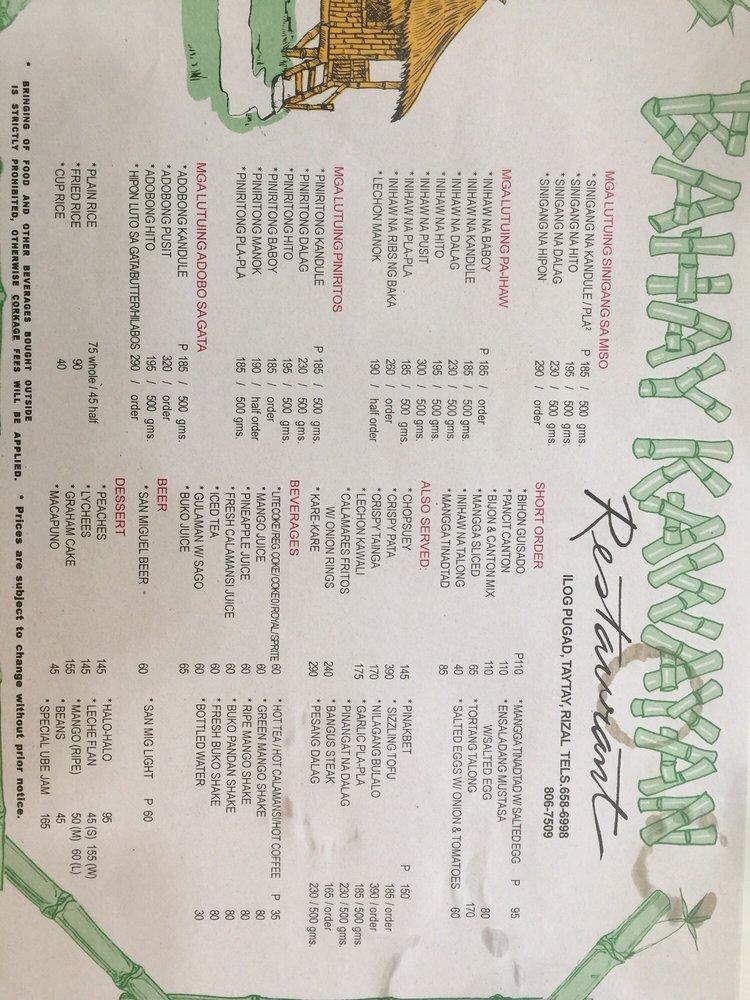 BAHAY KAWAYAN
Restaurant
ILOG PUGAD, TAYTAY, RIZAL TELS.658-6998
806-7509
MGA LUTUING SINIGANG SA MISO
* SINIGANG NA KANDULE / PLA² P 185 / 500 gms.
* SINIGANG NA HITO 195 / 500 gms.
* SINIGANG NA DALAG 230 / 500 gms.
* SINIGANG NA HIPON 290 / order
MGA LUTUING PA-IHAW
* INIHAW NA BABOY P 185 / order
* INIHAW NA KANDULE 185 / 500 gms.
* INIHAW NA DALAG 230 / 500 gms.
* INIHAW NA HITO 195 / 500 gms.
* INIHAW NA PUSIT 300 / 500 gms.
* INIHAW NA PLA-PLA 185 / 500 gms.
* INIHAW NA RIBS NG BAKA 260 / order
* LECHON MANOK 190 / half order
MGA LUTUING PINIRITOS
* PINIRITONG KANDULE P 185 / 500 gms.
* PINIRITONG DALAG 230 / 500 gms.
* PINIRITONG HITO 195 / 500 gms.
* PINIRITONG BABOY 185 / order
* PINIRITONG MANOK 190 / half order
* PINIRITONG PLA-PLA 185 / 500 gms.
MGA LUTUING ADOBO SA GATA
* ADOBONG KANDULE P 185 / 500 gms.
* ADOBONG PUSIT 320 / order
* ADOBONG HITO 195 / 500 gms.
* HIPON LUTO SA GATA/BUTTER/HILABOS 290 / order
* PLAIN RICE 75 whole / 45 half
* FRIED RICE 90
* CUP RICE 40
SHORT ORDER
* BIHON GUISADO P110
* PANCIT CANTON 110
* BIJON & CANTON MIX 110
* MANGGA SLICED 65
* INIHAW NA TALONG 40
* MANGGA TINADTAD 85
* MANGGA TINADTAD W/ SALTED EGG P 95
* ENSALADANG MUSTASA
W/SALTED EGG 80
* TORTANG TALONG 170
* SALTED EGGS W/ ONION & TOMATOES 60
ALSO SERVED:
* CHOPSUEY 145
* CRISPY PATA 390
* CRISPY TAINGA 170
* LECHON KAWALI 175
* CALAMARES FRITOS
W/ ONION RINGS 240
* KARE-KARE 290
* PINAKBET P 150
* SIZZLING TOFU 185 / order
* NILAGANG BULALO 390 / order
* GARLIC PLA-PLA 185 / 500 gms.
* PINANGAT NA DALAG 230 / 500 gms.
* BANGUS STEAK 165 / order
* PESANG DALAG 230 / 500 gms.
BEVERAGES
* LITE COKE / REG. COKE / COKE 0 / ROYAL / SPRITE 60
* MANGO JUICE 60
* PINEAPPLE JUICE 60
* FRESH CALAMANSI JUICE 60
* ICED TEA 60
* GULAMAN W/ SAGO 60
* BUKO JUICE 65
* HOT TEA / HOT CALAMANSI/HOT COFFEE P 35
* GREEN MANGO SHAKE 80
* RIPE MANGO SHAKE 80
* BUKO PANDAN SHAKE 80
* FRESH BUKO SHAKE 80
* BOTTLED WATER 30
BEER
* SAN MIGUEL BEER 60
* SAN MIG LIGHT P 60
DESSERT
* PEACHES 145
* LYCHEES 145
* GRAHAM CAKE 155
* MACAPUNO 45
* HALO-HALO 95
* LECHE FLAN 45 (S) 155 (W)
* MANGO (RIPE) 50 (M) 60 (L)
* BEANS 45
* SPECIAL UBE JAM 165
* BRINGING OF FOOD AND OTHER BEVERAGES BOUGHT OUTSIDE
IS STRICTLY PROHIBITED, OTHERWISE CORKAGE FEES WILL BE APPLIED. * Prices are subject to change without prior notice.